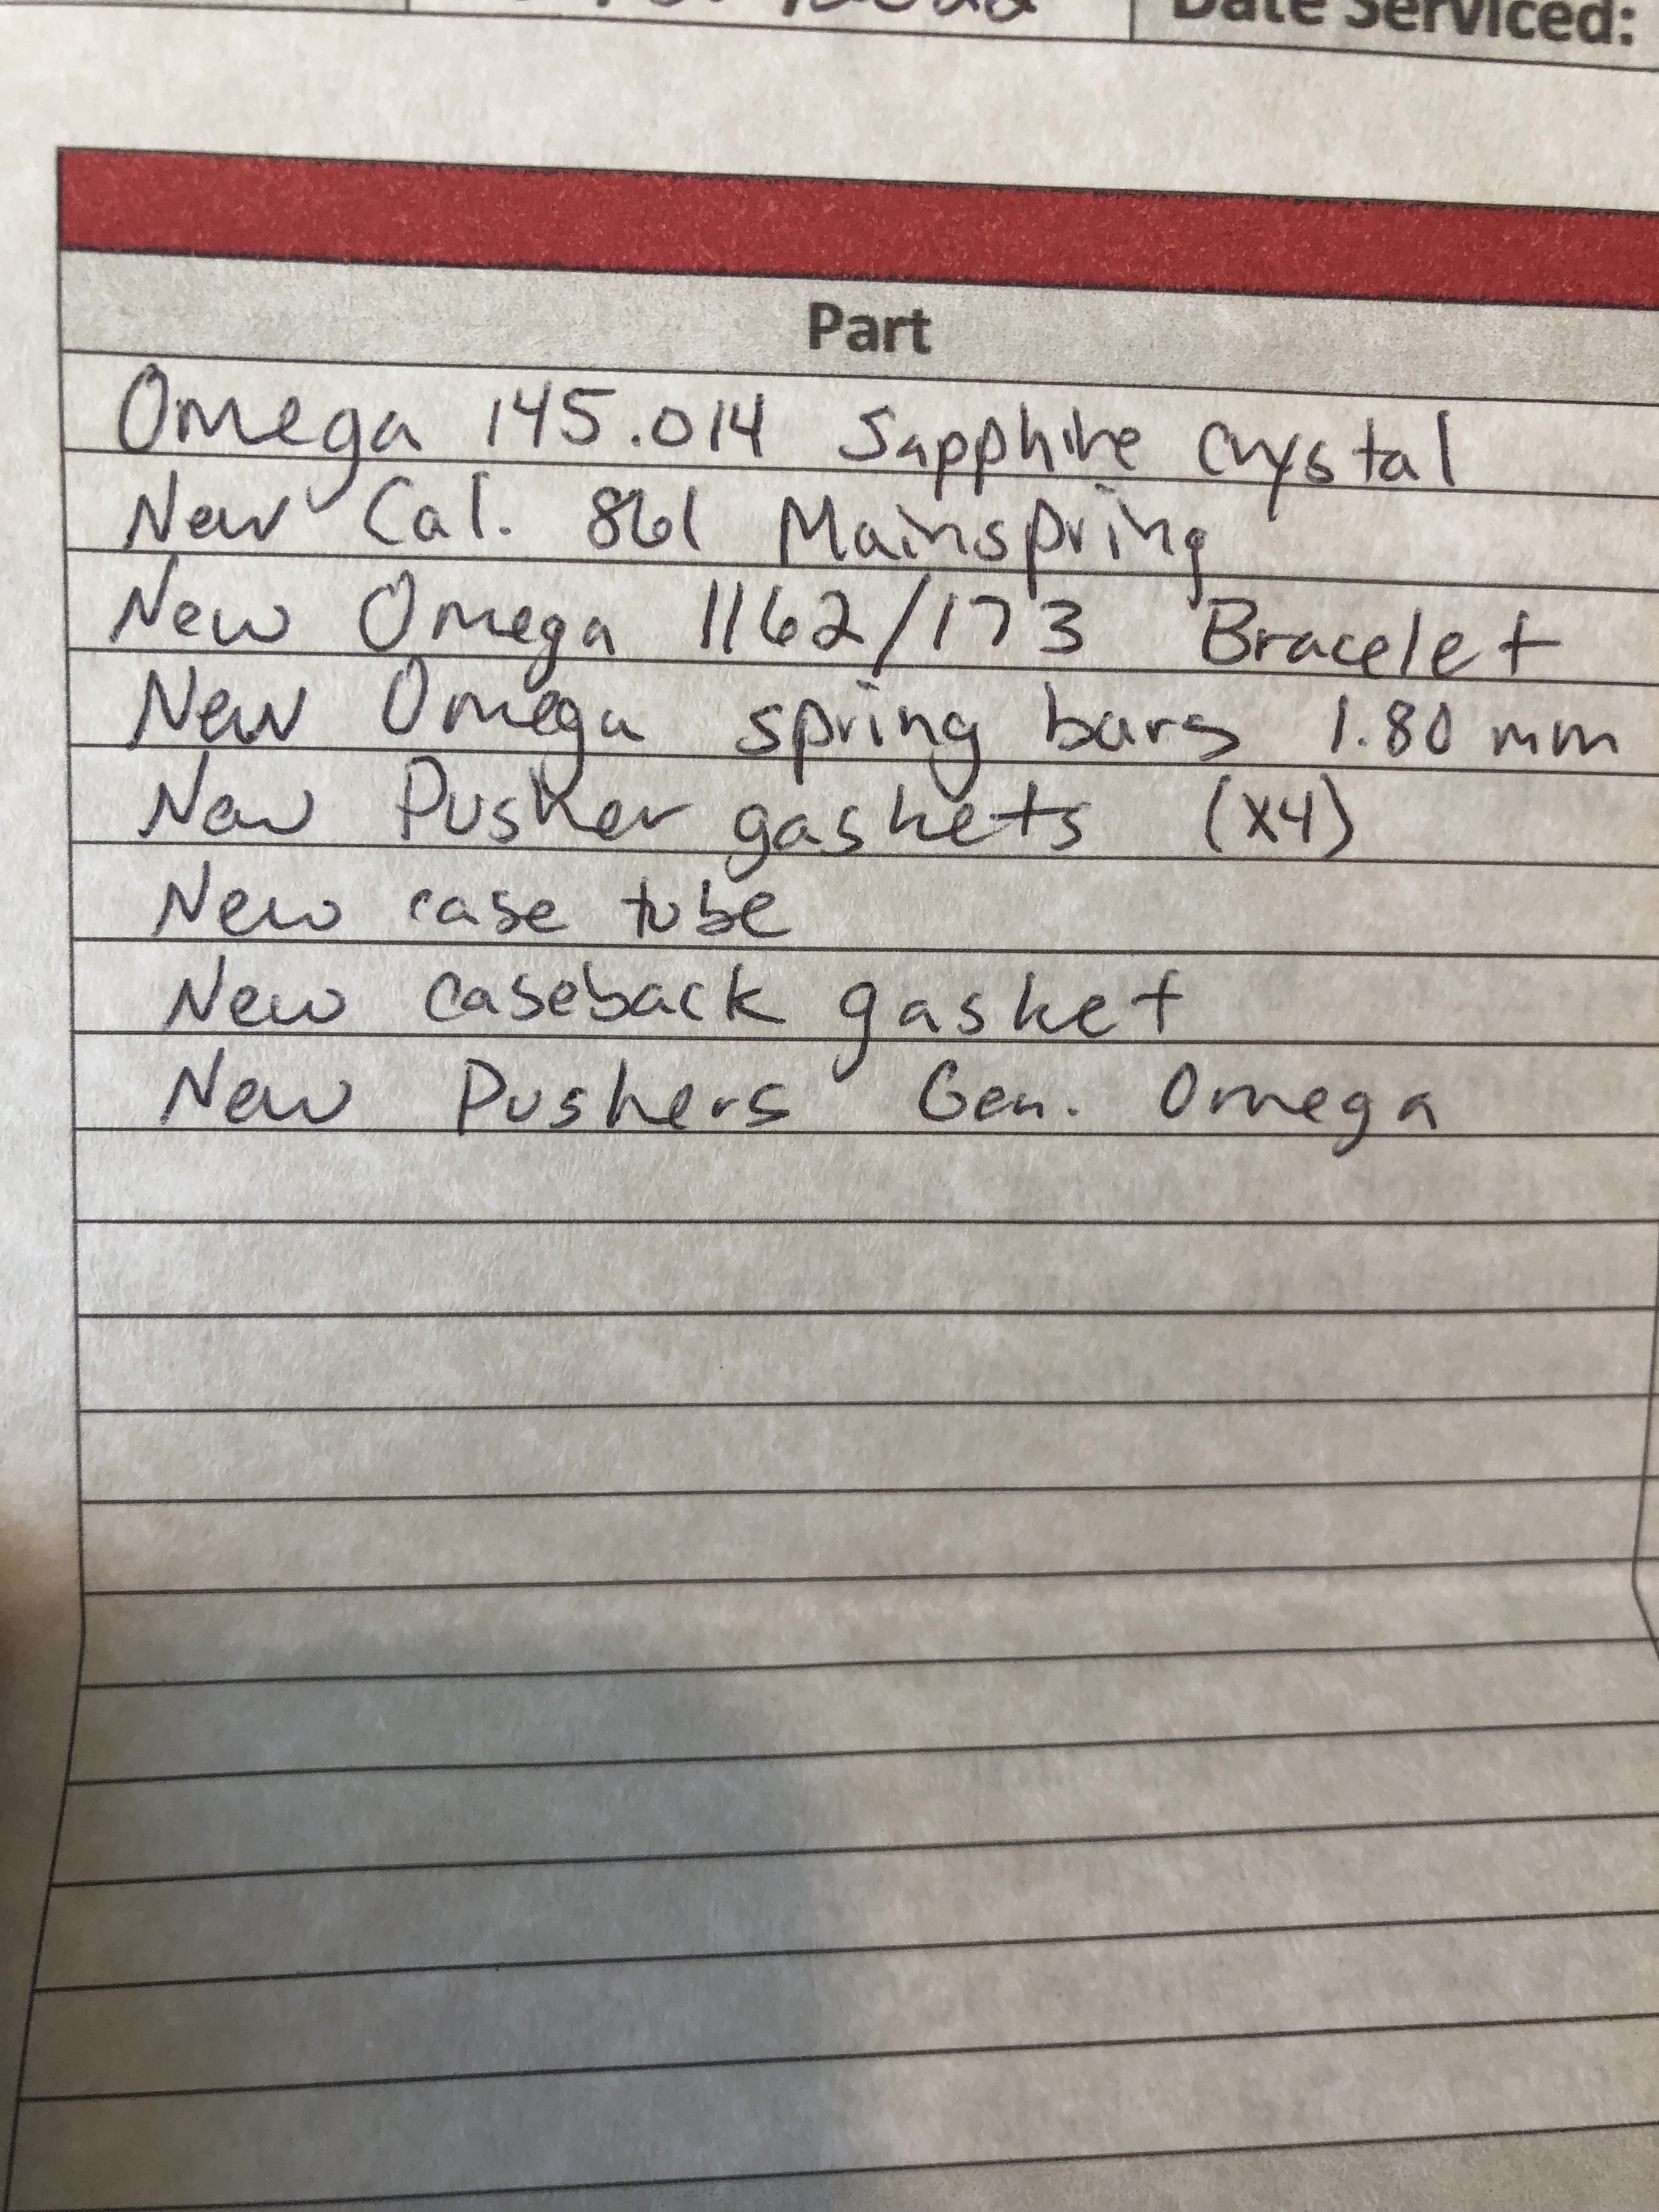 Date Serviced:
Part
Omega 145.014 Sapphire Crystal
New Cal. 861 Mainspring
New Omega 1162/173 Bracelet
New Omega spring bars 1.80 mm
New Pusher gaskets (x4)
New case tube
New caseback gasket
New Pushers Gen. Omega